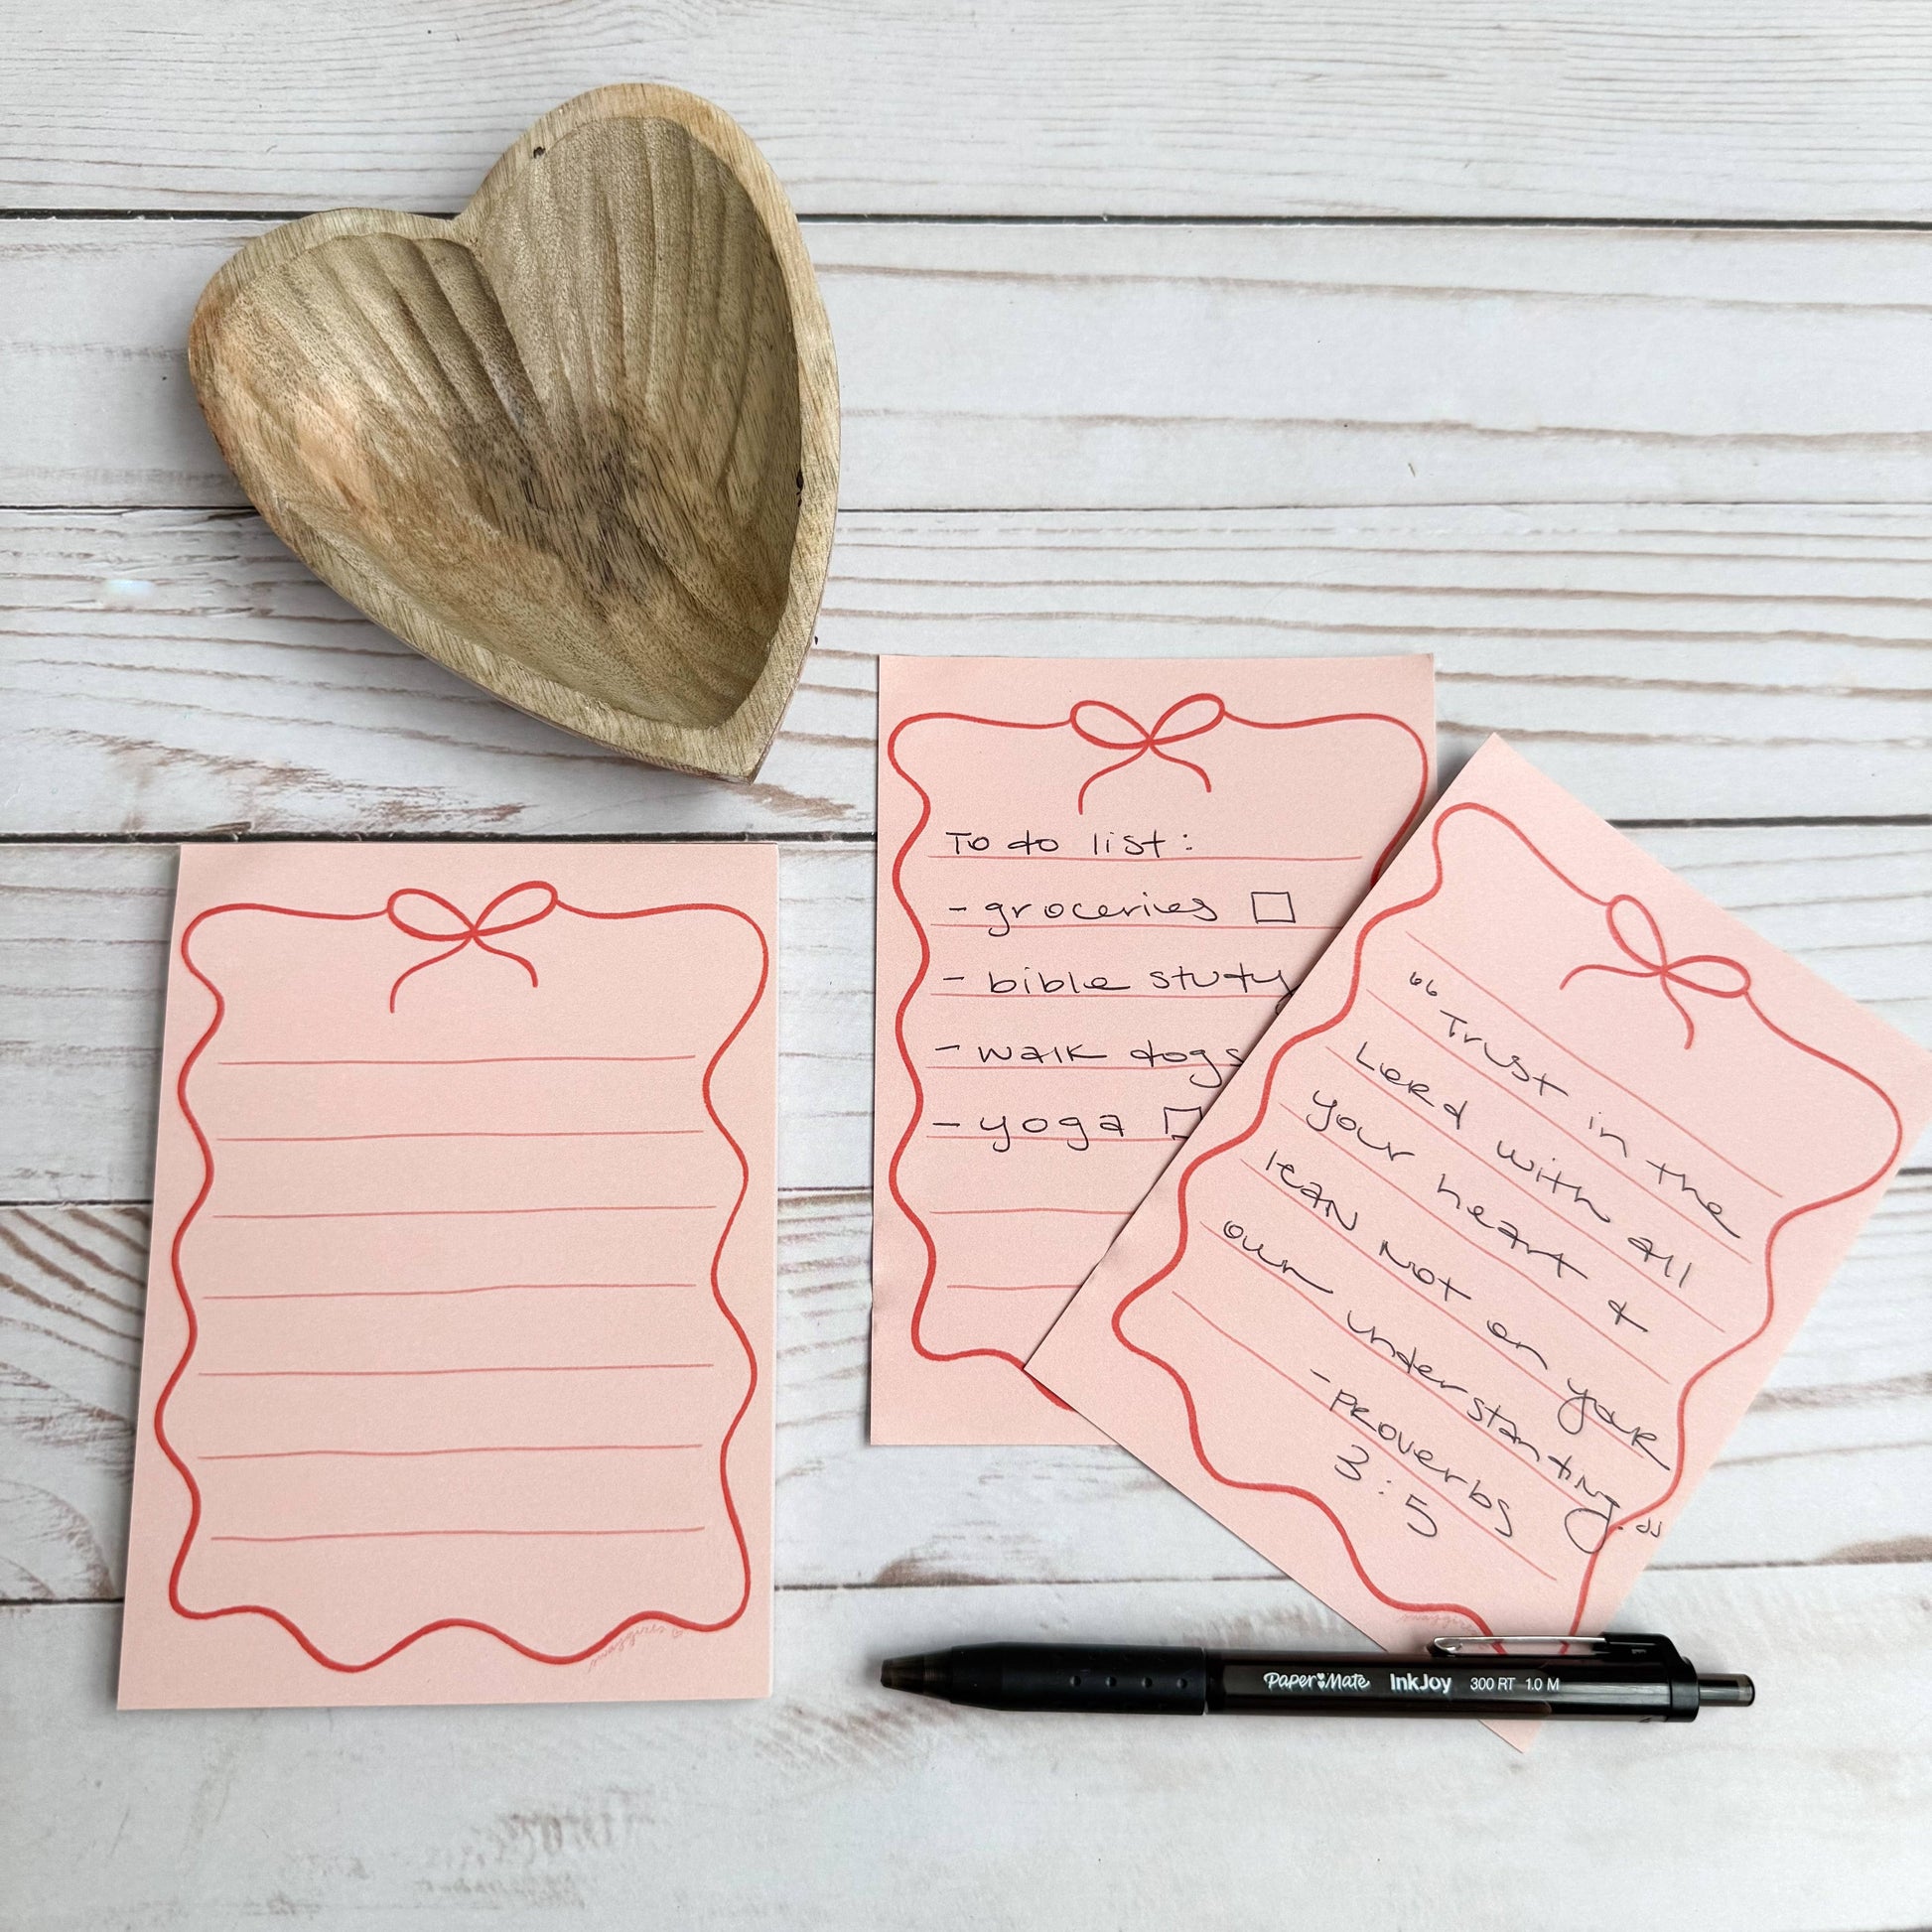 To do list:
- groceries
- bible study
- walk dogs
- yoga
“Trust in the
Lord with all
your heart &
lean not on your
own understanding.”
- Proverbs
3:5
Paper Mate InkJoy 300 RT 1.0 M